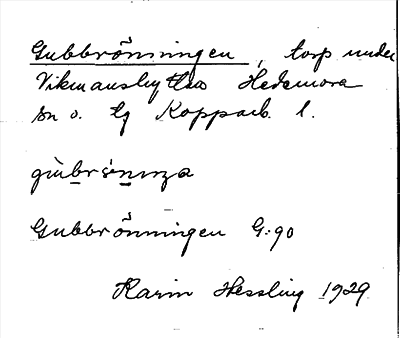 Gubbrönningen, torp under
Vikmanshyttan Hedemora
sn o. tg Kopparb. l.
Gubbrönningen G:90
Karin Hessling 1929